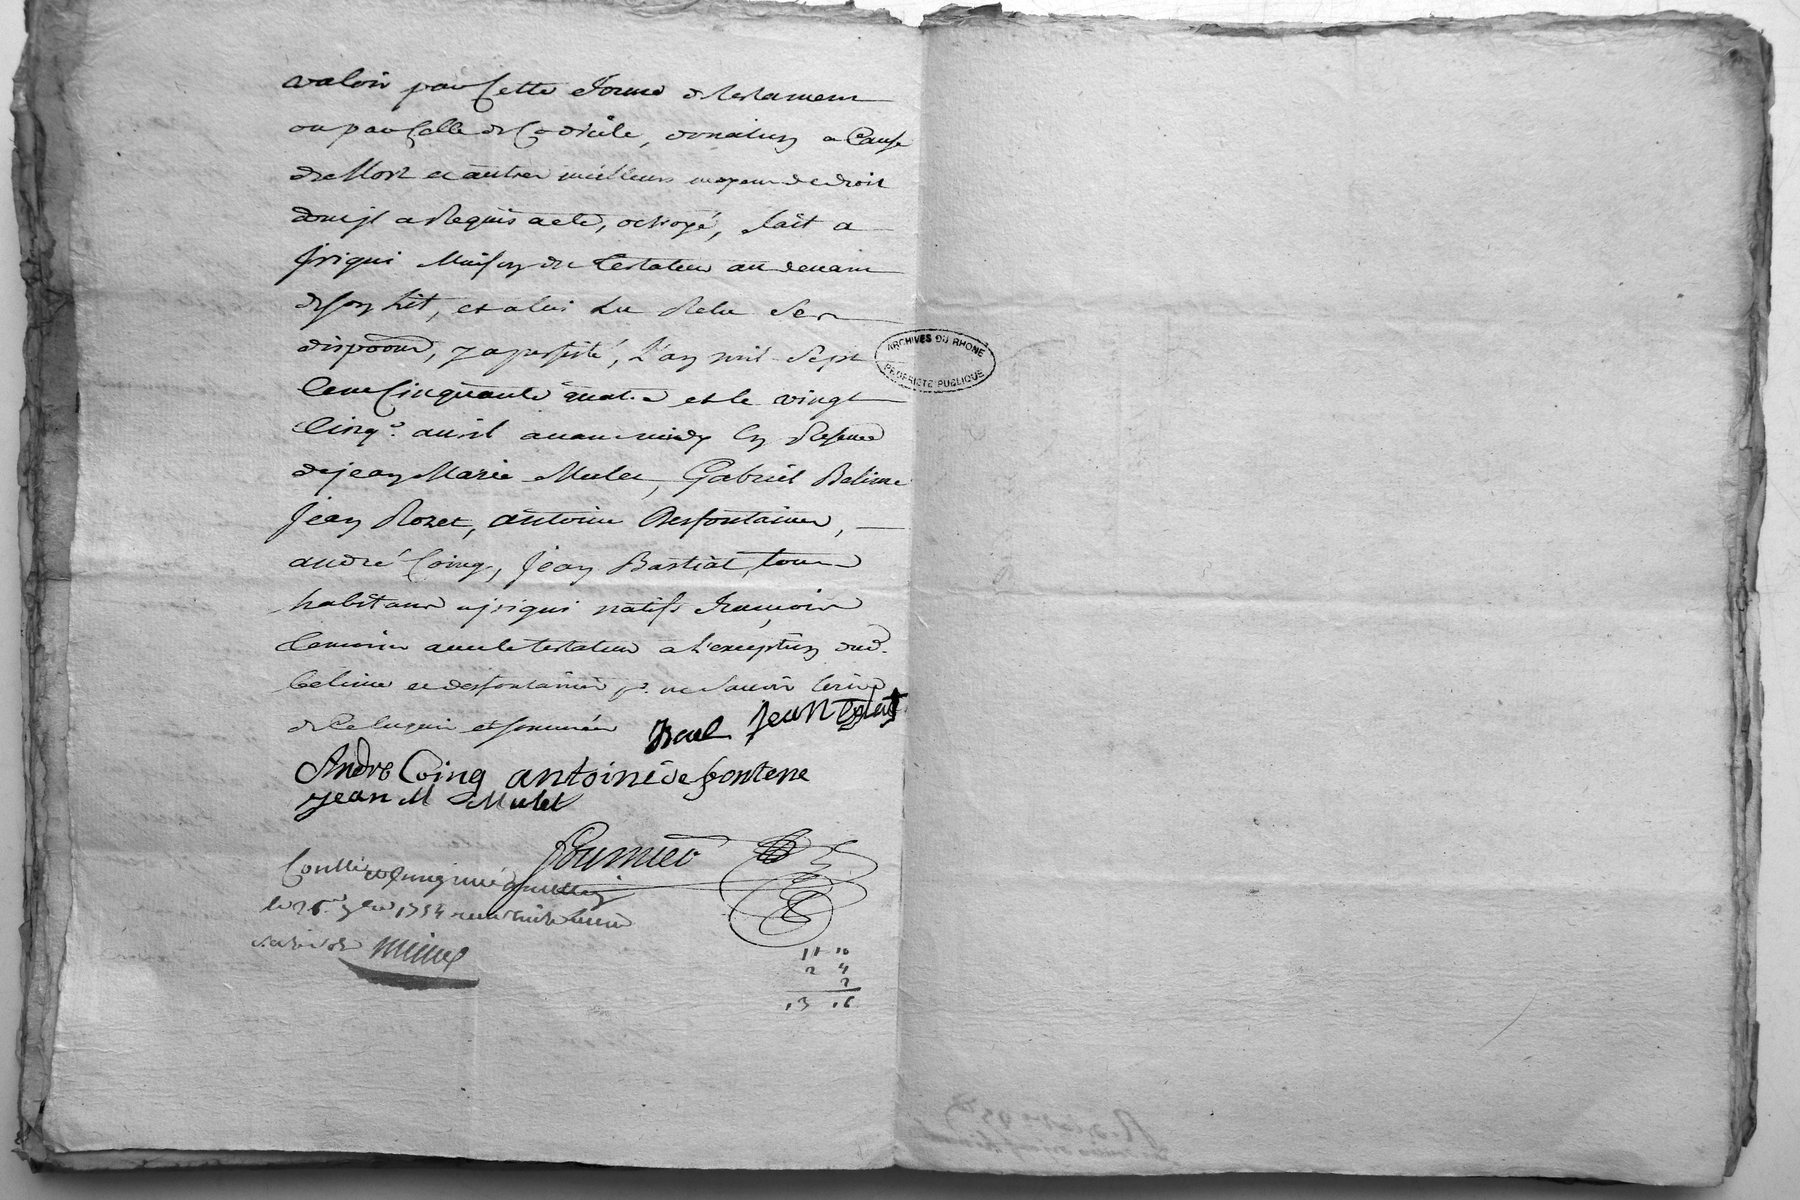 valoir par Cette forme de testament
ou par Celle de Codicile, donation a Cause
de Mort et autres meilleurs moyens de droit
dont jl a Requis acte, octroyé, fait a
jrigni Maison du testateur au devant
de son Lit, et a lui Lu Relu Ses
dispoõns, y a persisté, L'an mil Sept
Cent Cinquante quatre et le vingt
Cinq.e avril avant midy En presence
de jean Marie Mulet, Gabriel Belime
jean Rozet, antoine Desfontaines,
andré Coing, jean Bastiat, tous
habitans a jrigni natifs françois
temoins avec le testateur a L'exception dud.
belime et desfontaines p.r ne Savoir Ecrire
de Ce Enquis et sommés
jean
André Coing antoine de fontene
jean M Mulet
fournier
Controllé
le 1754
ARCHIVES DU RHONE
PROPRIETE PUBLIQUE
11 10
2 4
2
13 16